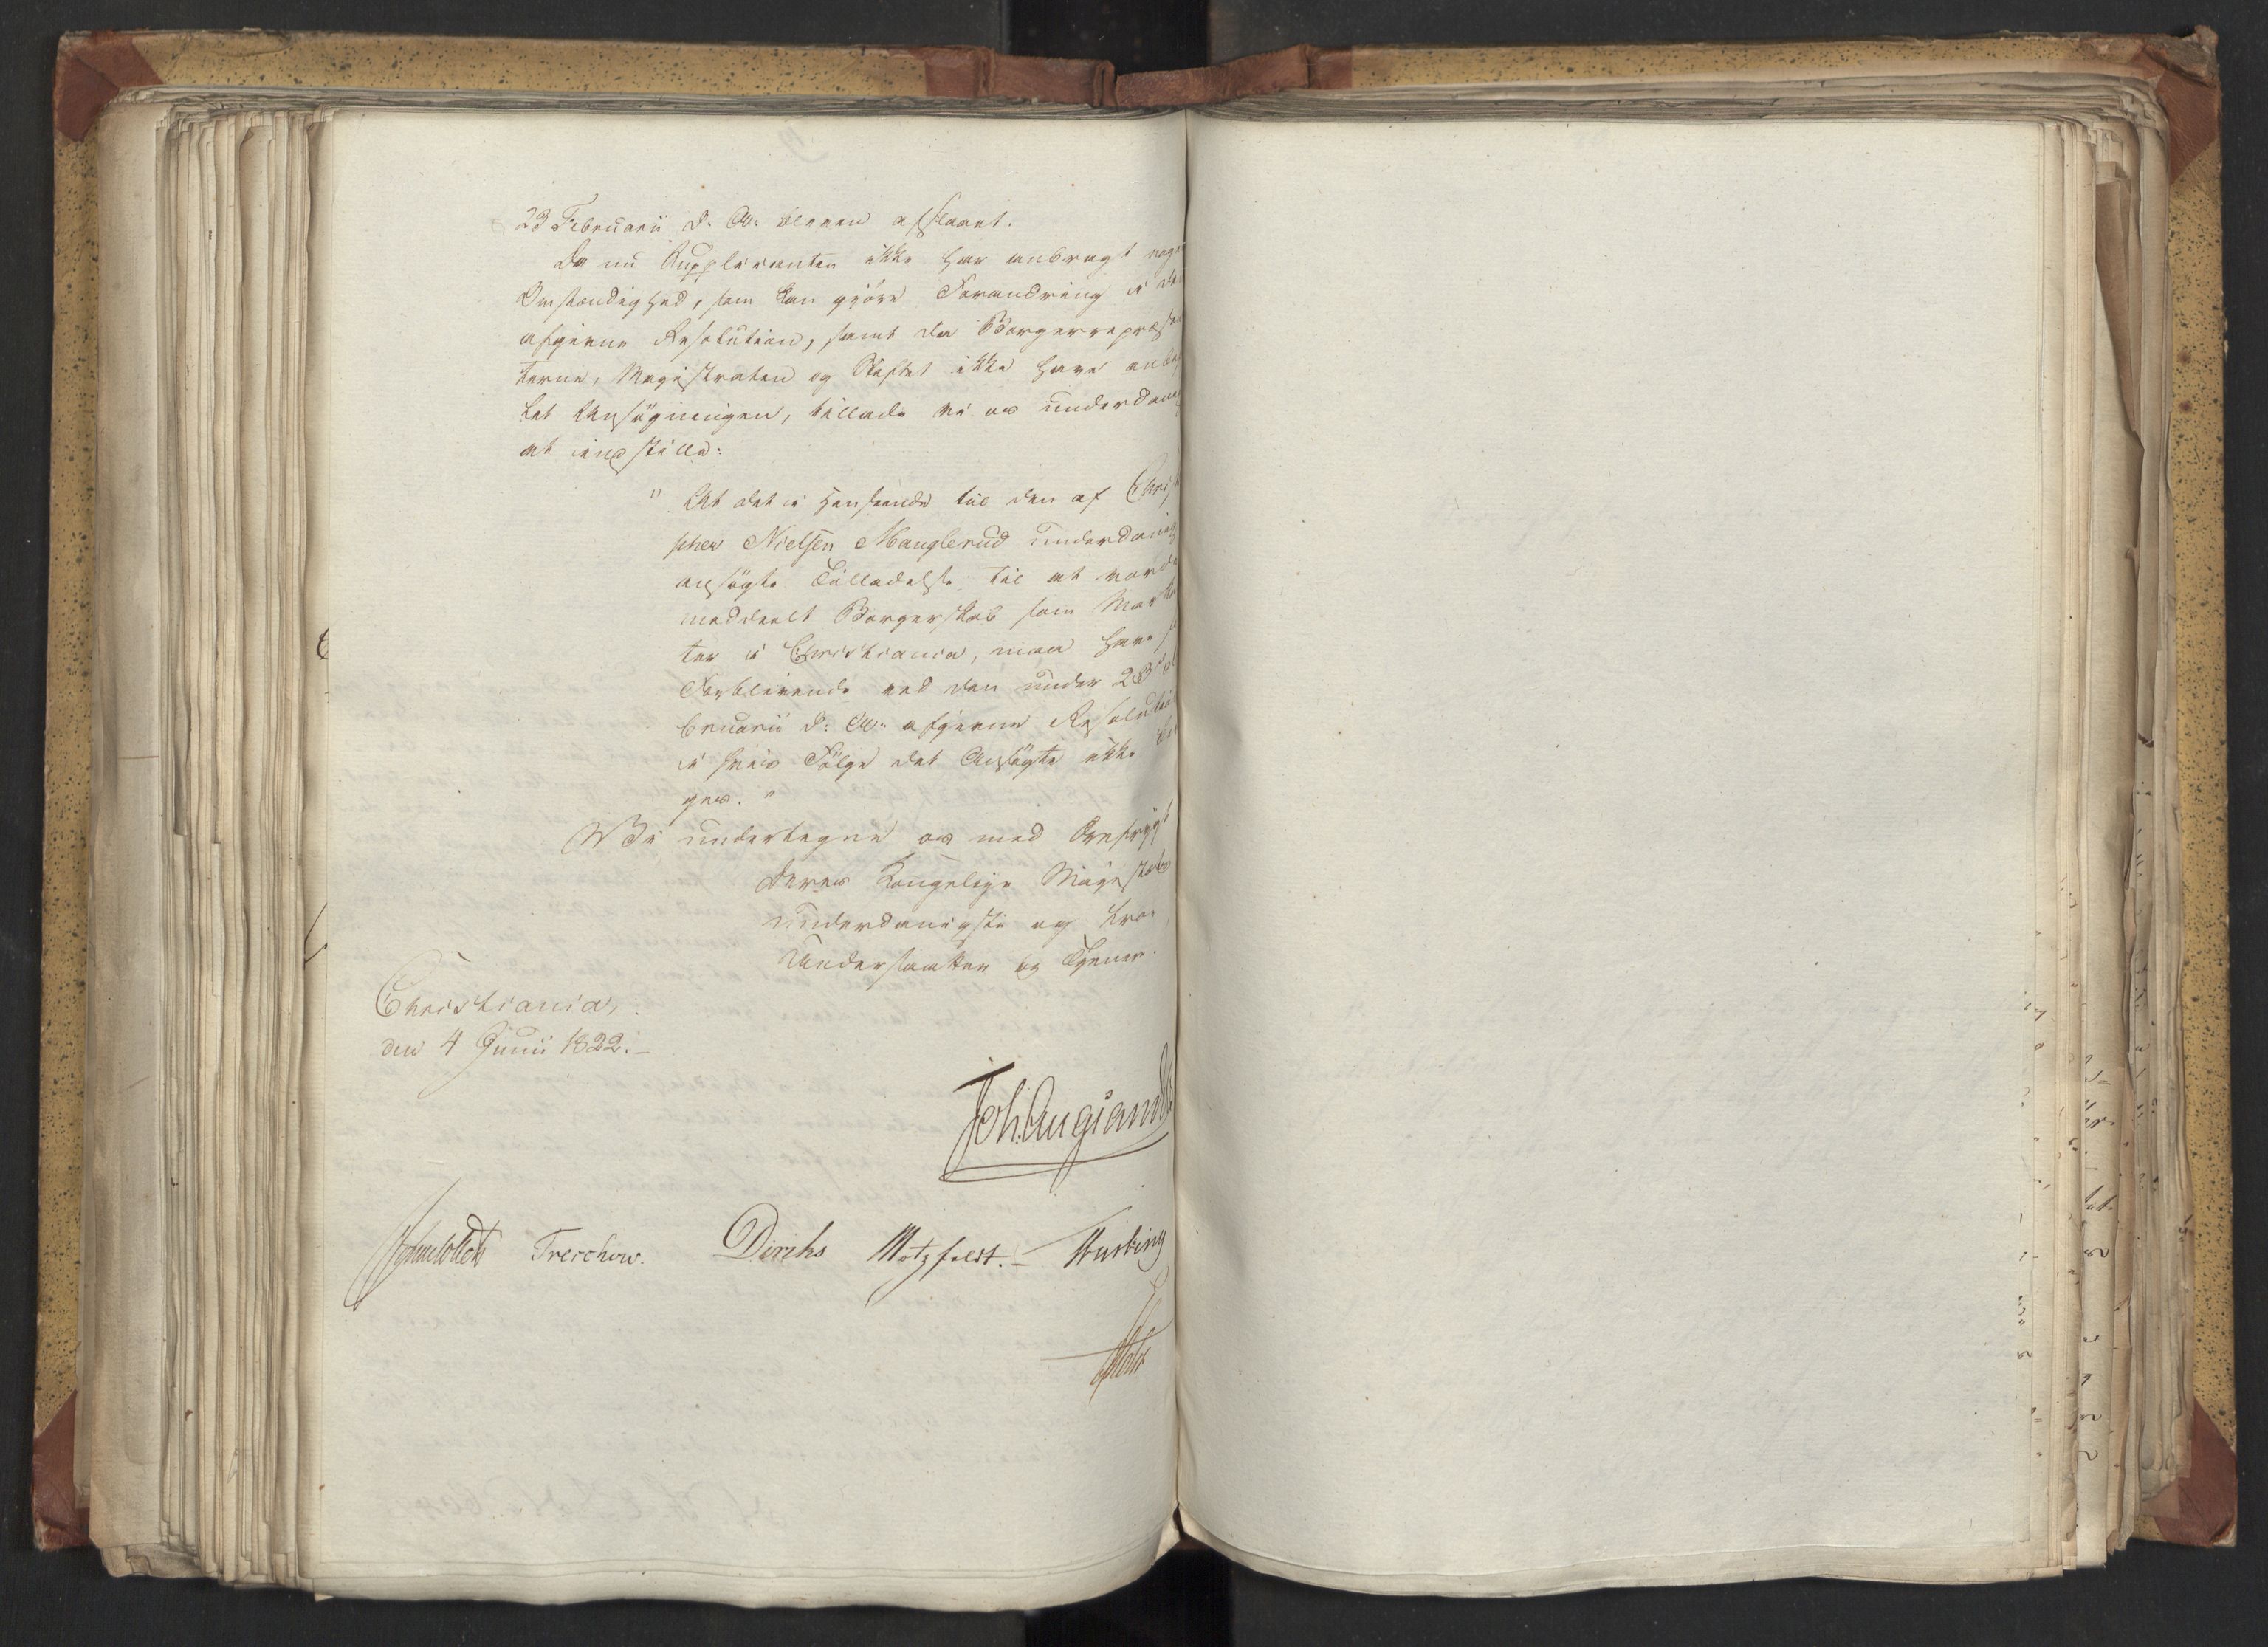 23 Februarii d. A. bleven afslaaet.
Da nu Supplicanten ikke har anbragt nog
Omstændighed, som kan gjöre Forandring i de
afgivne Resolution, samt da Borgerrepræs
terne, Magistraten og Stiftet ikke have anb
let Ansögningen, tillade vi os underdan
at indstille:
"At det i Henseende til den af Chris
pher Nielsen Manglerud underdanig
ansögte Tilladelse til at vorde
meddeelt Borgerskab som Mar
ter i Christiania, maa have
Forblivende ved den under 23
bruarii d. A. afgivne Resoluti
i hvis Fölge det Ansögte ikke
ges."
Vi undertegne os med Ærefrygt
Deres Kongelige Majestæts
underdanigste og troe
Undersaatter og Tjenere.
Christiania,
den 4 Junii 1822.
Joh. Aug. Sandels
Sommerhielm Treschow. Diriks Motzfeldt. Fasting
Holst